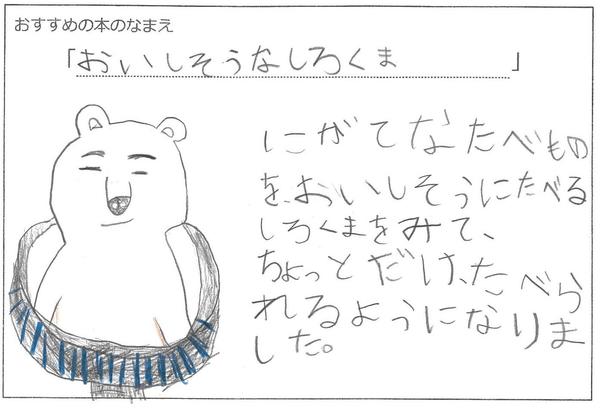 おすすめの本のなまえ
「おいしそうなしろくま」
にがてなたべもの
を、おいしそうにたべる
しろくまをみて、
ちょっとだけ、たべら
れるようになりま
した。